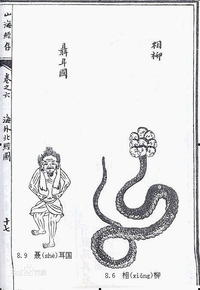 相柳
聶耳國
山海經存
卷之六
海外北經圖
十七
8.9 聂(shè)耳国
8.6 相(xiāng)柳